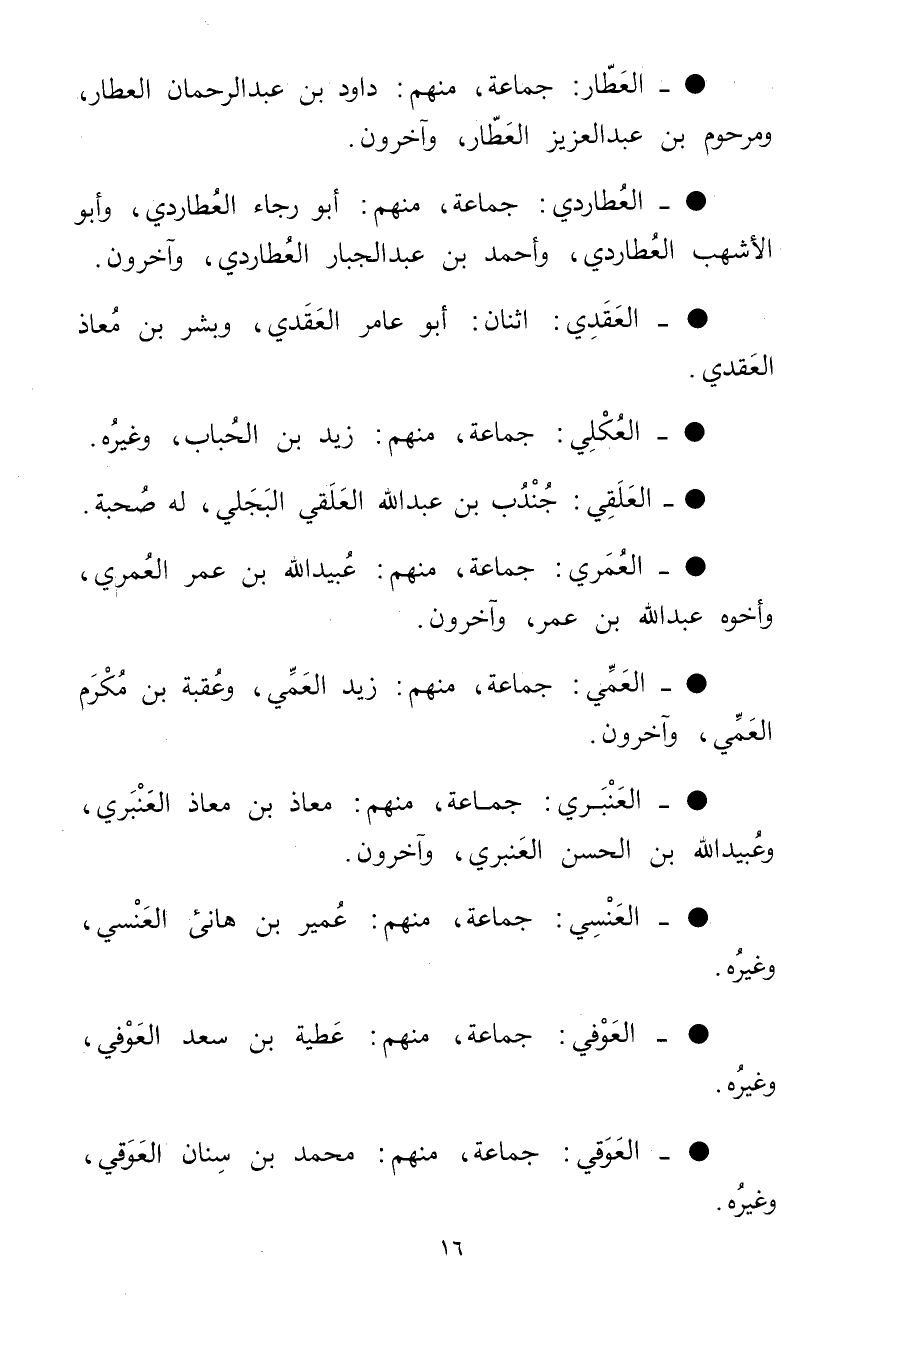 ● ـ العَطّار: جماعة، منهم: داود بن عبدالرحمان العطار،
ومرحوم بن عبدالعزيز العَطّار، وآخرون.
● ـ العُطاردي: جماعة، منهم: أبو رجاء العُطاردي، وأبو
الأشهب العُطاردي، وأحمد بن عبدالجبار العُطاردي، وآخرون.
● ـ العَقَدِي: اثنان: أبو عامر العَقَدي، وبشر بن مُعاذ
العَقدي.
● ـ العُكْلِي: جماعة، منهم: زيد بن الحُباب، وغيرُه.
● ـ العَلَقِي: جُنْدُب بن عبدالله العَلَقي البَجَلي، له صُحبة.
● ـ العُمَري: جماعة، منهم: عُبيدالله بن عمر العُمري،
وأخوه عبدالله بن عمر، وآخرون.
● ـ العَمِّي: جماعة، منهم: زيد العَمِّي، وعُقبة بن مُكْرَم
العَمِّي، وآخرون.
● ـ العَنْبَري: جماعة، منهم: معاذ بن معاذ العَنْبَري،
وعُبيدالله بن الحسن العَنبري، وآخرون.
● ـ العَنْسِي: جماعة، منهم: عُمير بن هانئ العَنْسي،
وغيرُه.
● ـ العَوْفي: جماعة، منهم: عَطية بن سعد العَوْفي،
وغيرُه.
● ـ العَوَقي: جماعة، منهم: محمد بن سِنان العَوَقي،
وغيرُه.
١٦